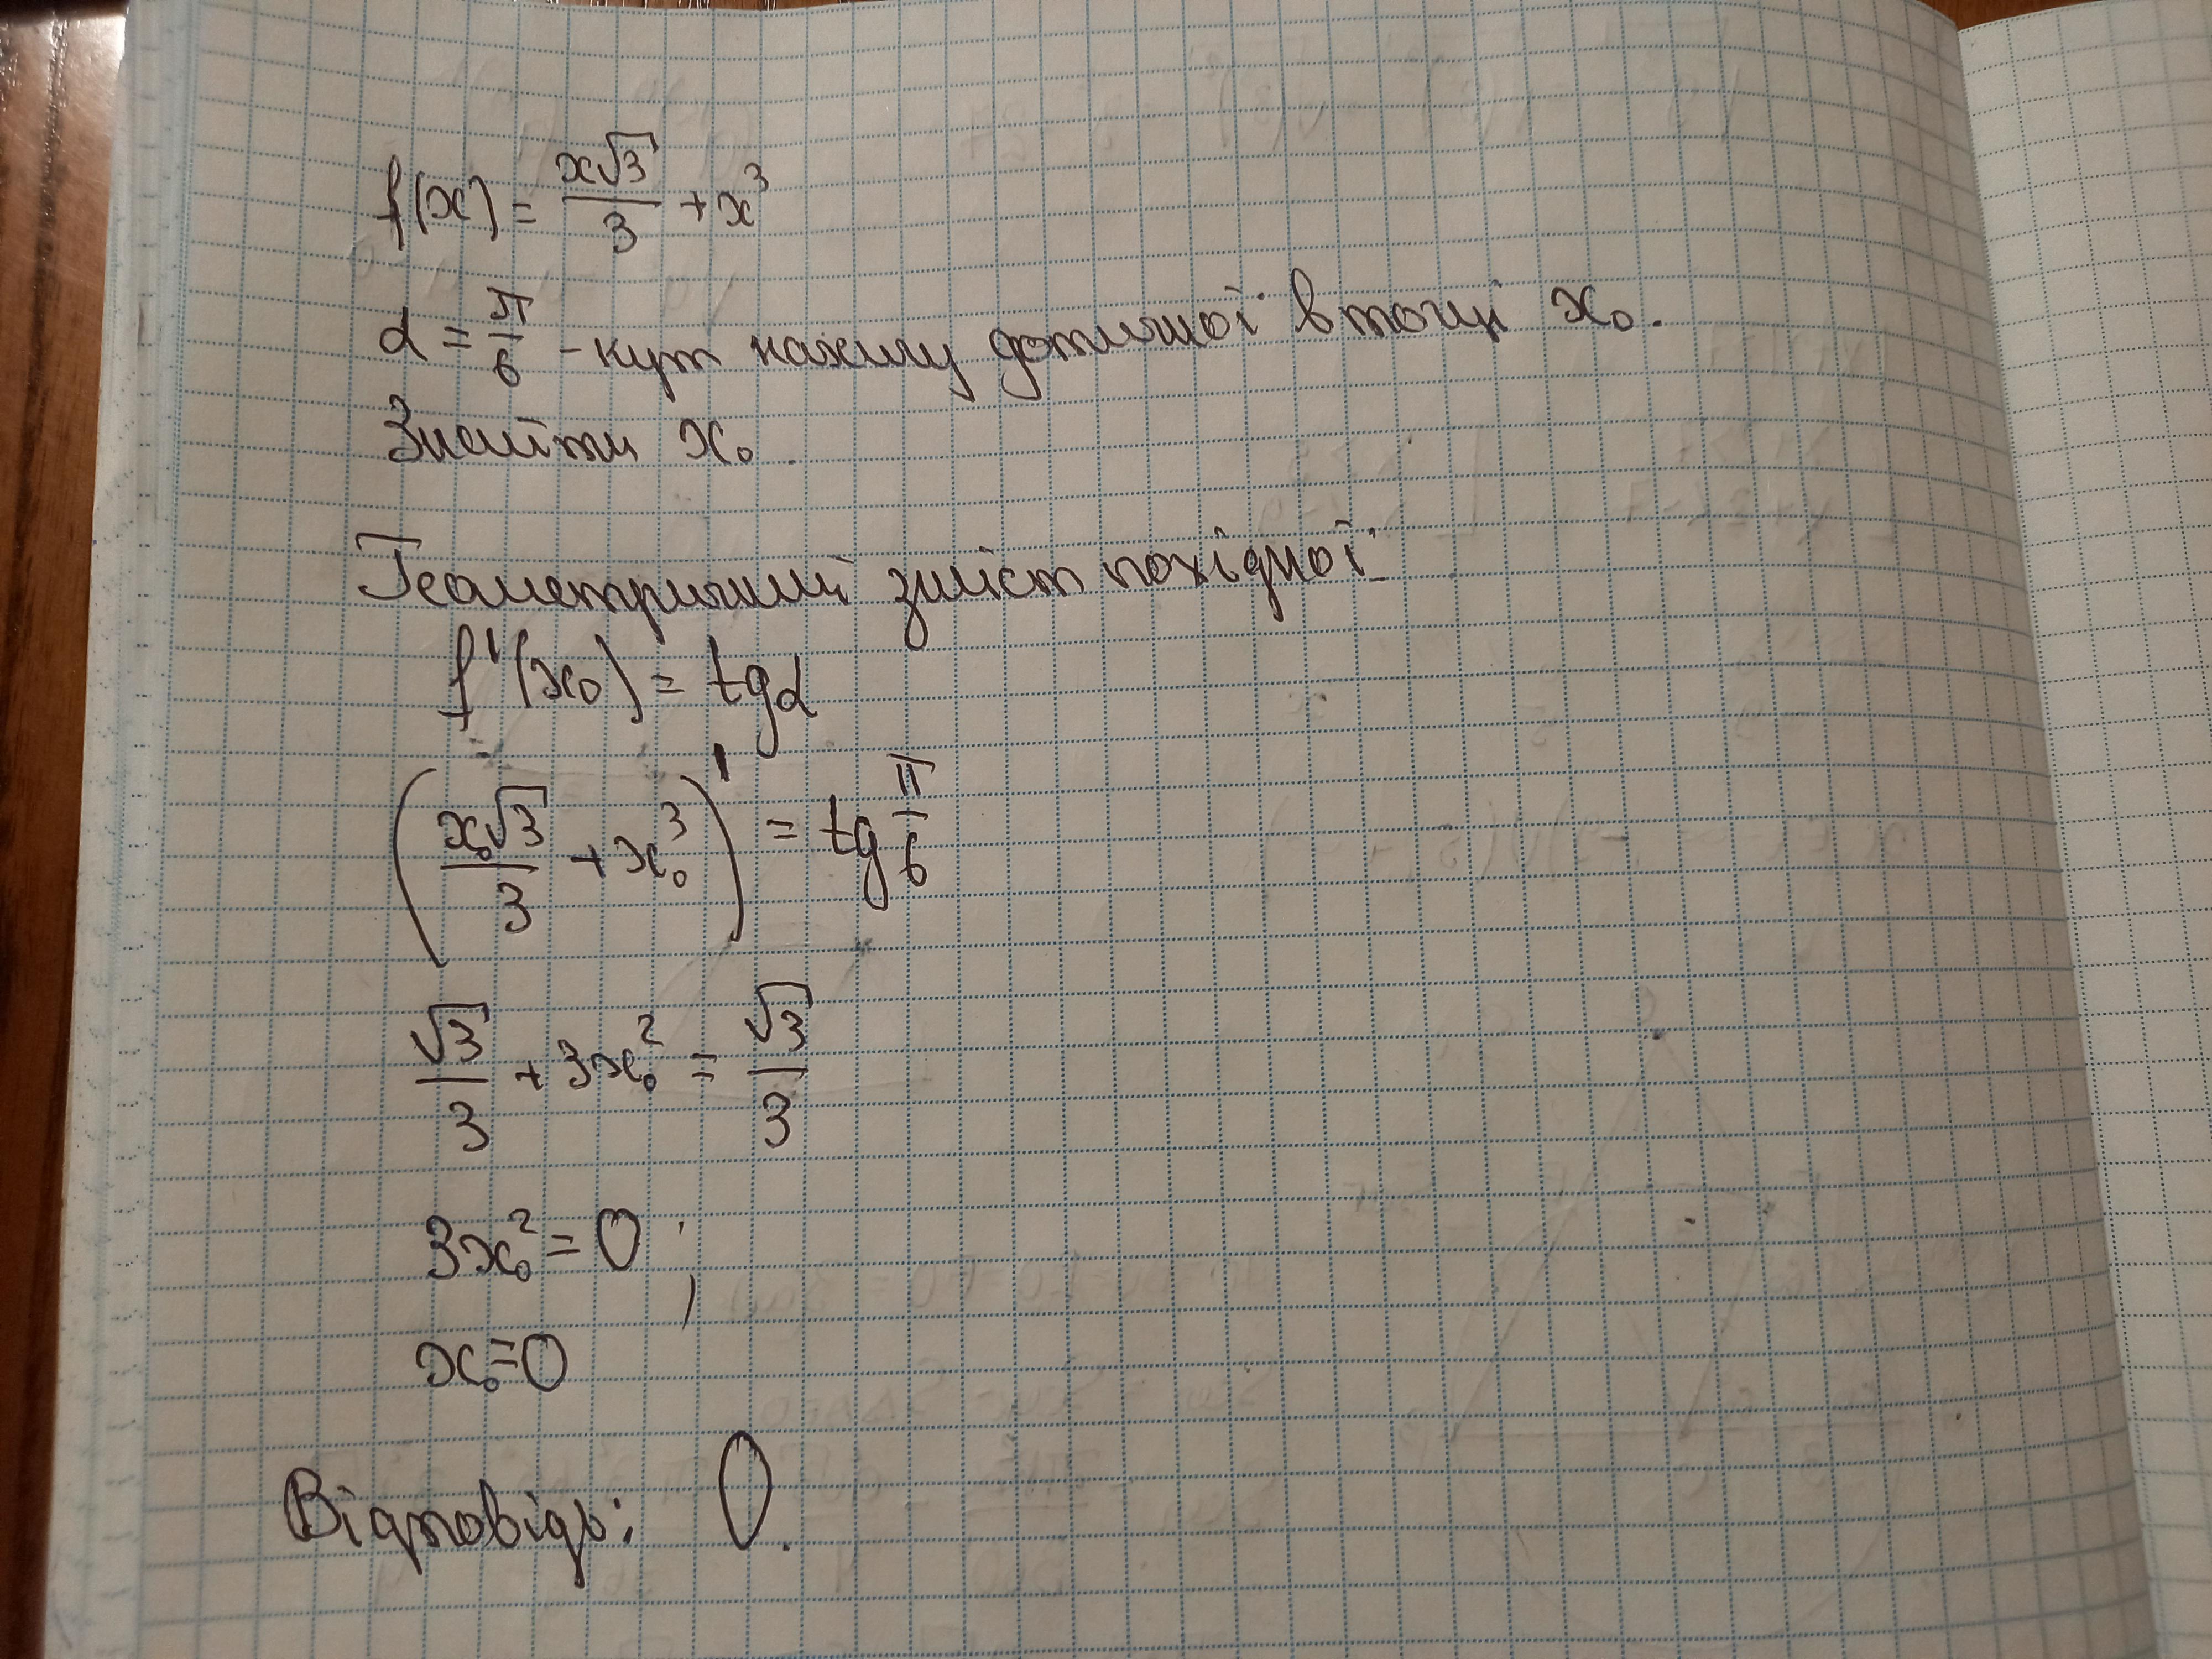 f(x) = x√3/3 + x³
α = π/6 - кут нахилу дотичної в точці x₀.
Знайти x₀.
Геометричний зміст похідної:
f'(x₀) = tgα
(x₀√3/3 + x₀³)' = tg π/6
√3/3 + 3x₀² = √3/3
3x₀² = 0;
x₀ = 0
Відповідь: 0.